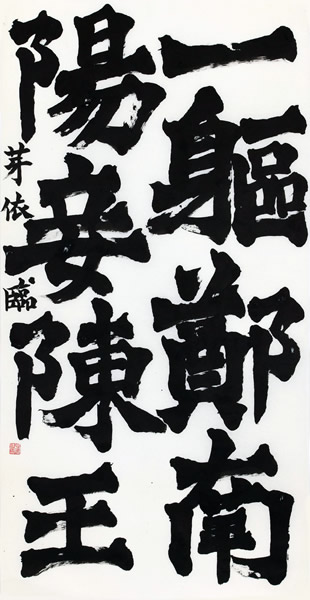 一軀鄭南
陽妾陳王
芽依臨